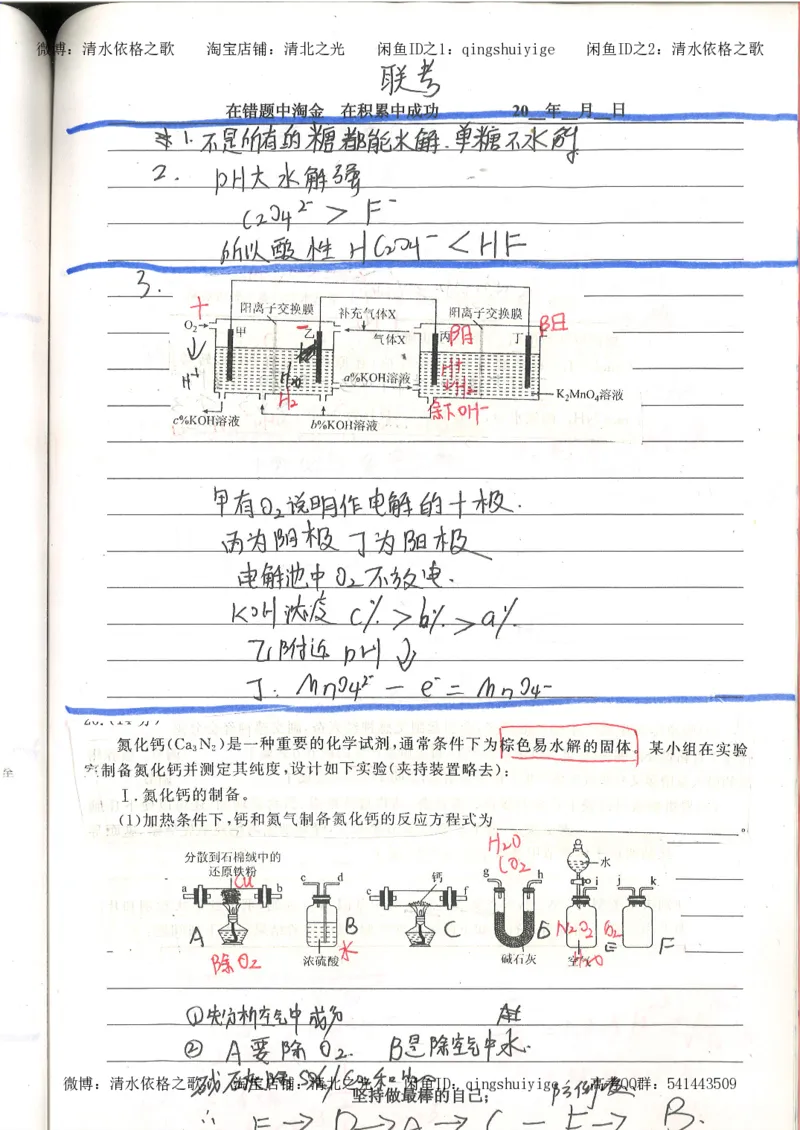 微博：清水依格之歌 淘宝店铺：清北之光 闲鱼ID之1：qingshuiyige 闲鱼ID之2：清水依格之歌
联考
在错题中淘金 在积累中成功 20__年__月__日
1. 不是所有的糖都能水解.单糖不水解
2. pH大水解强
C2O4²⁻ > F⁻
所以酸性 HC2O4⁻ < HF
3.
阳离子交换膜 补充气体X 阳离子交换膜
+ O₂ 甲 − 乙 气体X 丙 阳 丁 阳
H⁺ H₂O a%KOH溶液 H⁺
H₂ K₂MnO₄溶液
c%KOH溶液 b%KOH溶液 余下OH⁻
甲有O₂说明作电解的十极.
丙为阴极 丁为阳极
电解池中O₂不放电.
KOH浓度 c%>b%>a%
乙附近 pH↓
丁: MnO4²⁻ − e⁻ = MnO4⁻
20.(14分)
氮化钙(Ca₃N₂)是一种重要的化学试剂,通常条件下为棕色易水解的固体。某小组在实验
室制备氮化钙并测定其纯度,设计如下实验(夹持装置略去):
Ⅰ.氮化钙的制备。
(1)加热条件下,钙和氮气制备氮化钙的反应方程式为 。
分散到石棉绒中的
还原铁粉
H₂O
CO₂
a Cu b c d 钙 f g h 水 i j k
A B C N₂ O₂ F
除O₂ 浓硫酸 水 碱石灰
①先分析空气中成分
② A要除O₂. B是除空气中水.
微博：清水依格之歌 淘宝店铺：清北之光 闲鱼ID：qingshuiyige 高考QQ群：541443509
坚持做最棒的自己；